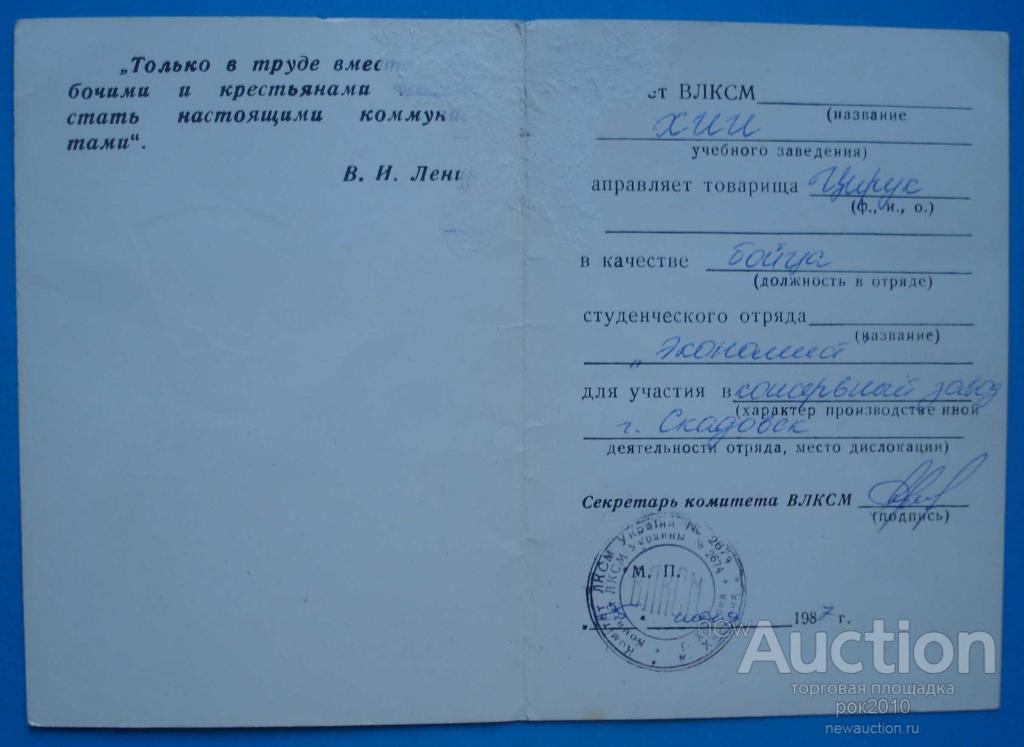 „Только в труде вмест
бочими и крестьянами
стать настоящими коммунис
тами“.
В. И. Лени
ет ВЛКСМ
(название
ХИИ
учебного заведения)
аправляет товарища Цирук
(ф., и., о.)
в качестве бойца
(должность в отряде)
студенческого отряда
(название)
„Экономист"
для участия в консервный завод
(характер производстве нной
г. Скадовск
деятельности отряда, место дислокации)
Секретарь комитета ВЛКСМ
(подпись)
Комітет ЛКСМ України № 2674
ЛКСМ Украины № 2674
ВЛКСМ
М. П.
1987 г.
newAuction
торговая площадка
рок2010
newauction.ru